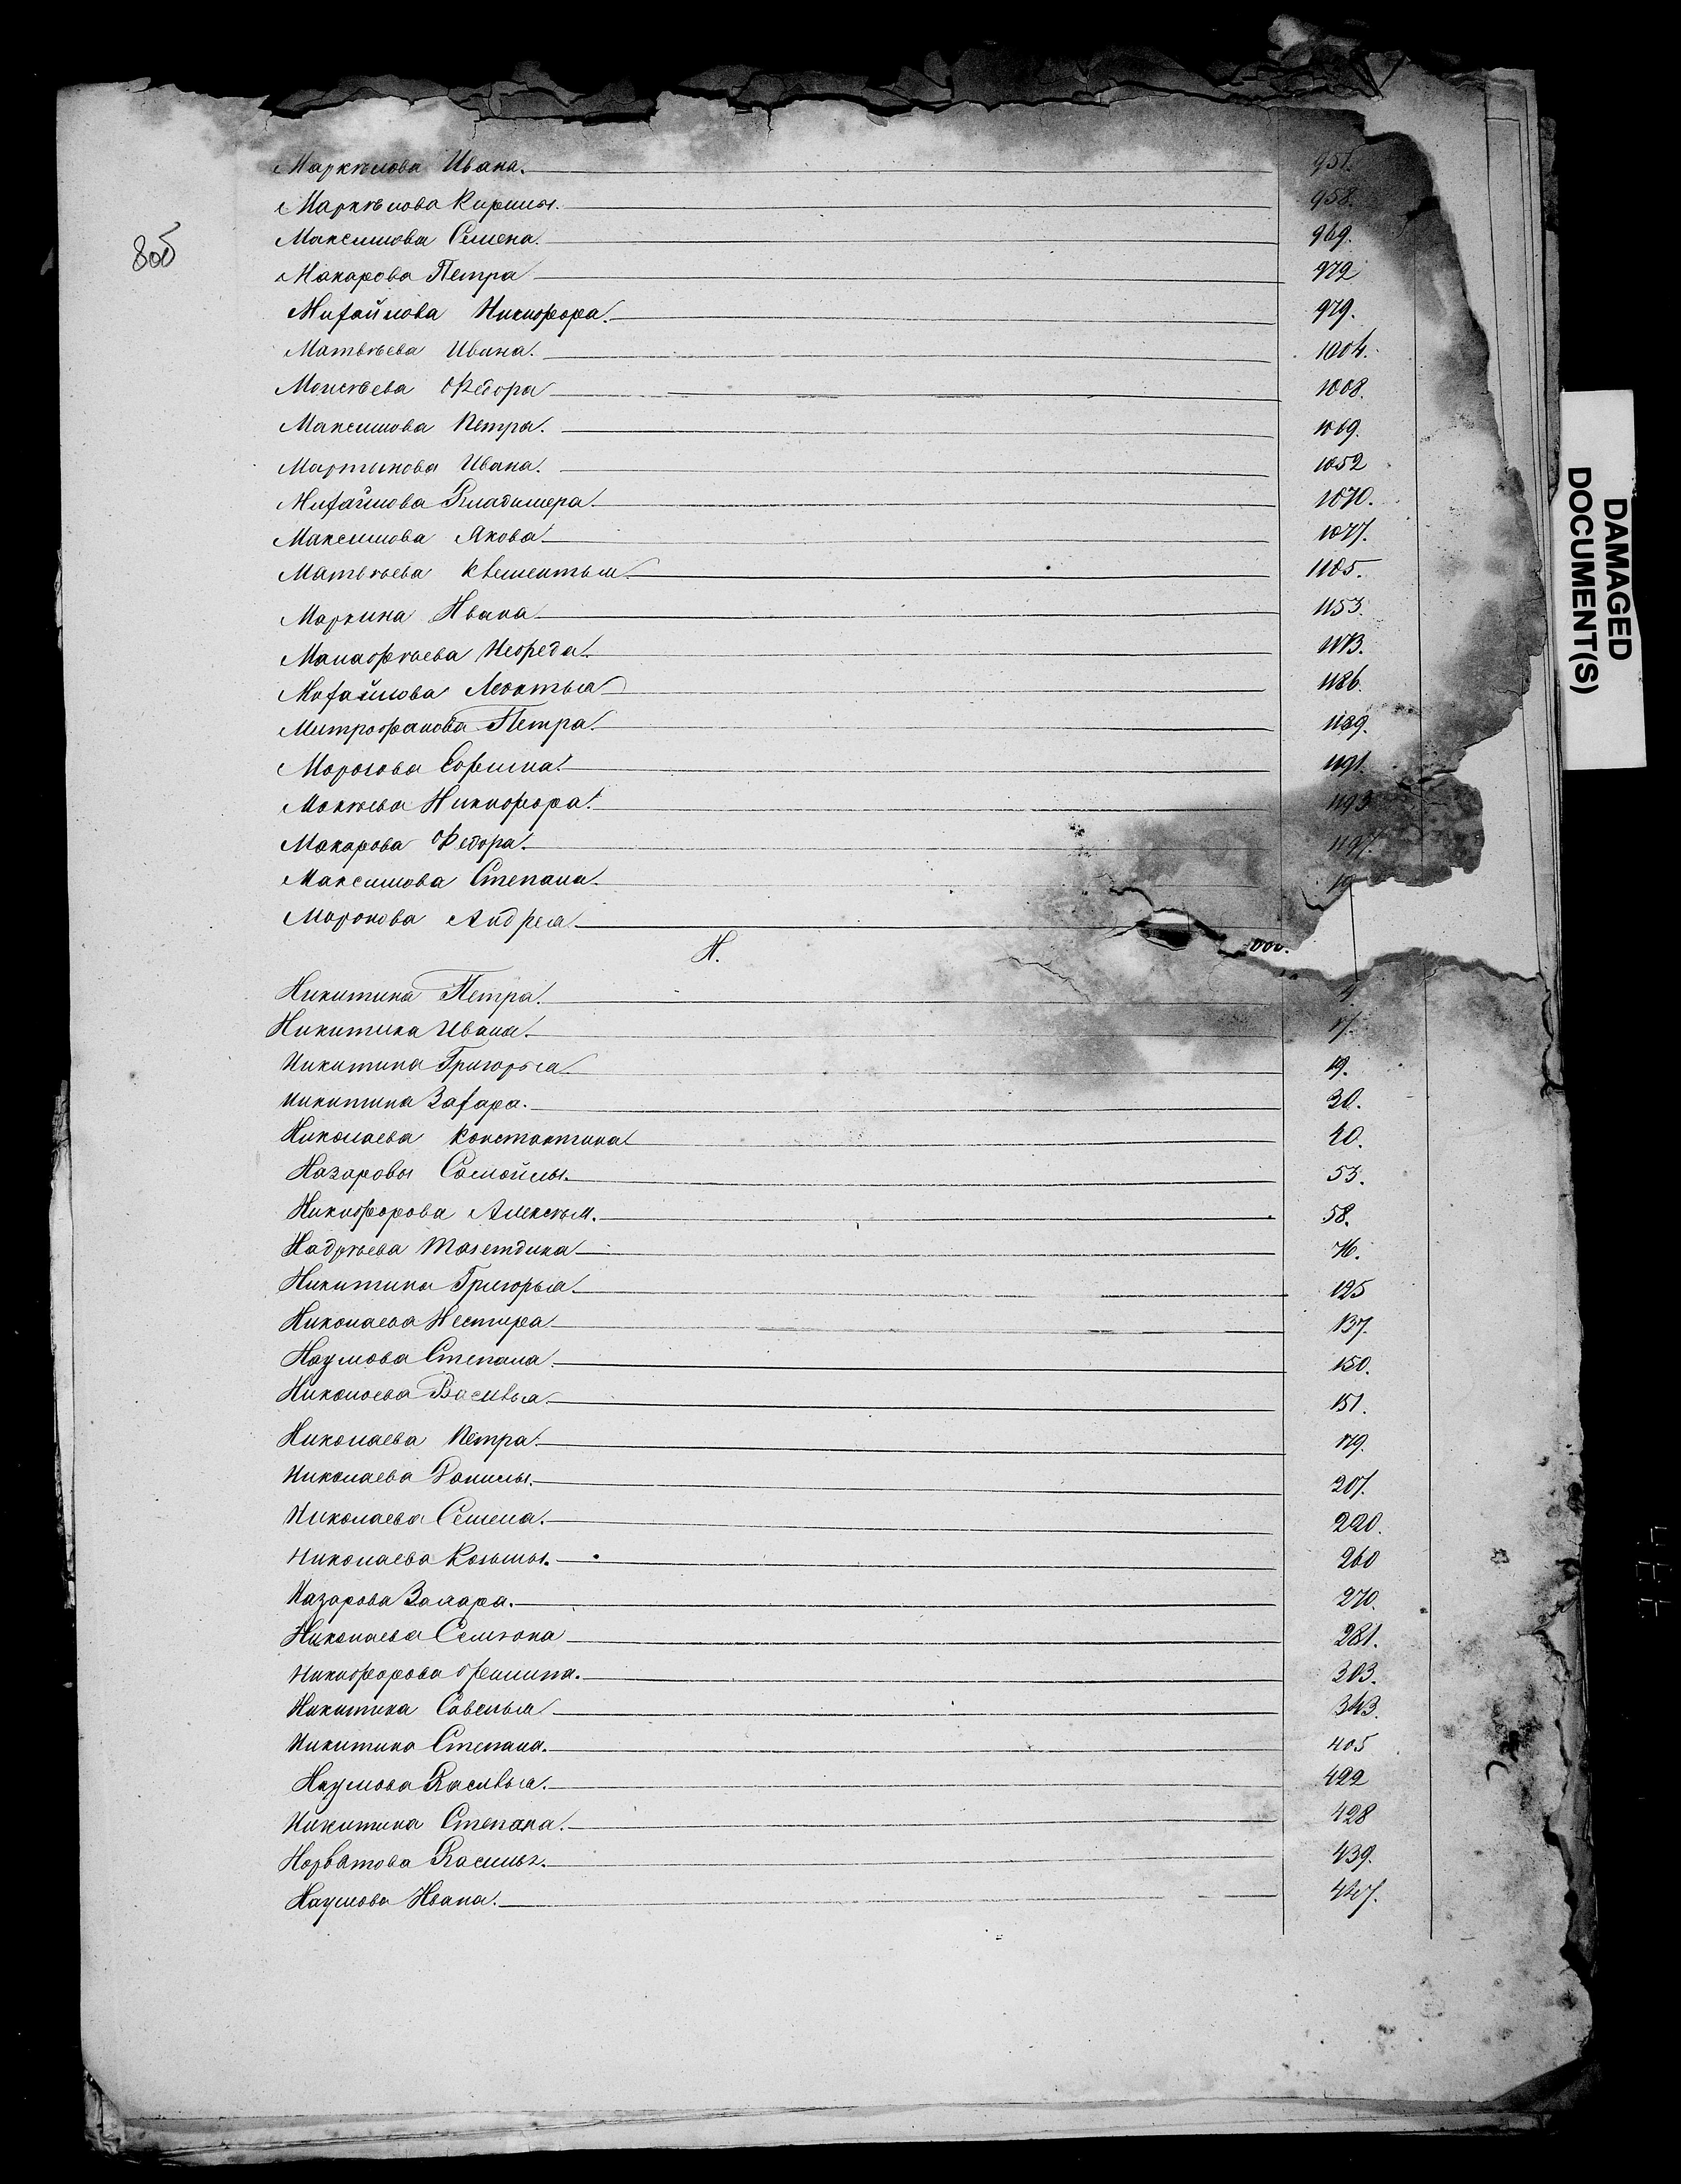 8об
Маркѣлова Ивана. 951.
Маркѣлова Кирилы. 958.
Максимова Семена. 969.
Макарова Петра 972
Михайлова Никифора. 979.
Матвѣева Ивана. 1004.
Моисѣева Ѳедора 1008.
Максимова Петра. 1069.
Мартынова Ивана. 1052
Михайлова Владимера. 1070.
Максимова Якова. 1077.
Матвѣева Клементья. 1105.
Маркина Ивана 1153.
Манафѣева Нефеда. 1173.
Михайлова Леонтья 1186.
Митрофанова Петра. 1189.
Морозова Ефима. 1191.
Мокѣева Никифора. 1193
Макарова Федора. 1197.
Максимова Степана.
Миронова Андрея.
Н.
Никитина Петра. 4
Никитина Ивана. 17.
Никитина Григорья. 19.
Никитина Захара. 30.
Николаева Константина 40.
Назаровы Самойлы. 53.
Никифорова Алексѣя. 58.
Надрѣева 76.
Никитина Григорья. 125
Николаева Нестера 137.
Наумова Степана. 150.
Николаева Василья. 151.
Николаева Петра. 179.
Николаева Данилы. 207.
Николаева Семена. 220.
Николаева Козьмы. 260
Назарова Захара. 270.
Николаева Семена 281.
Никифорова Ефима. 303.
Никитина Савелья 343.
Никитина Степана. 405
Наумова Василья. 422
Никитина Степана. 428
Норватова Василья. 439.
Наумова Ивана. 447.
DAMAGED
DOCUMENT(S)